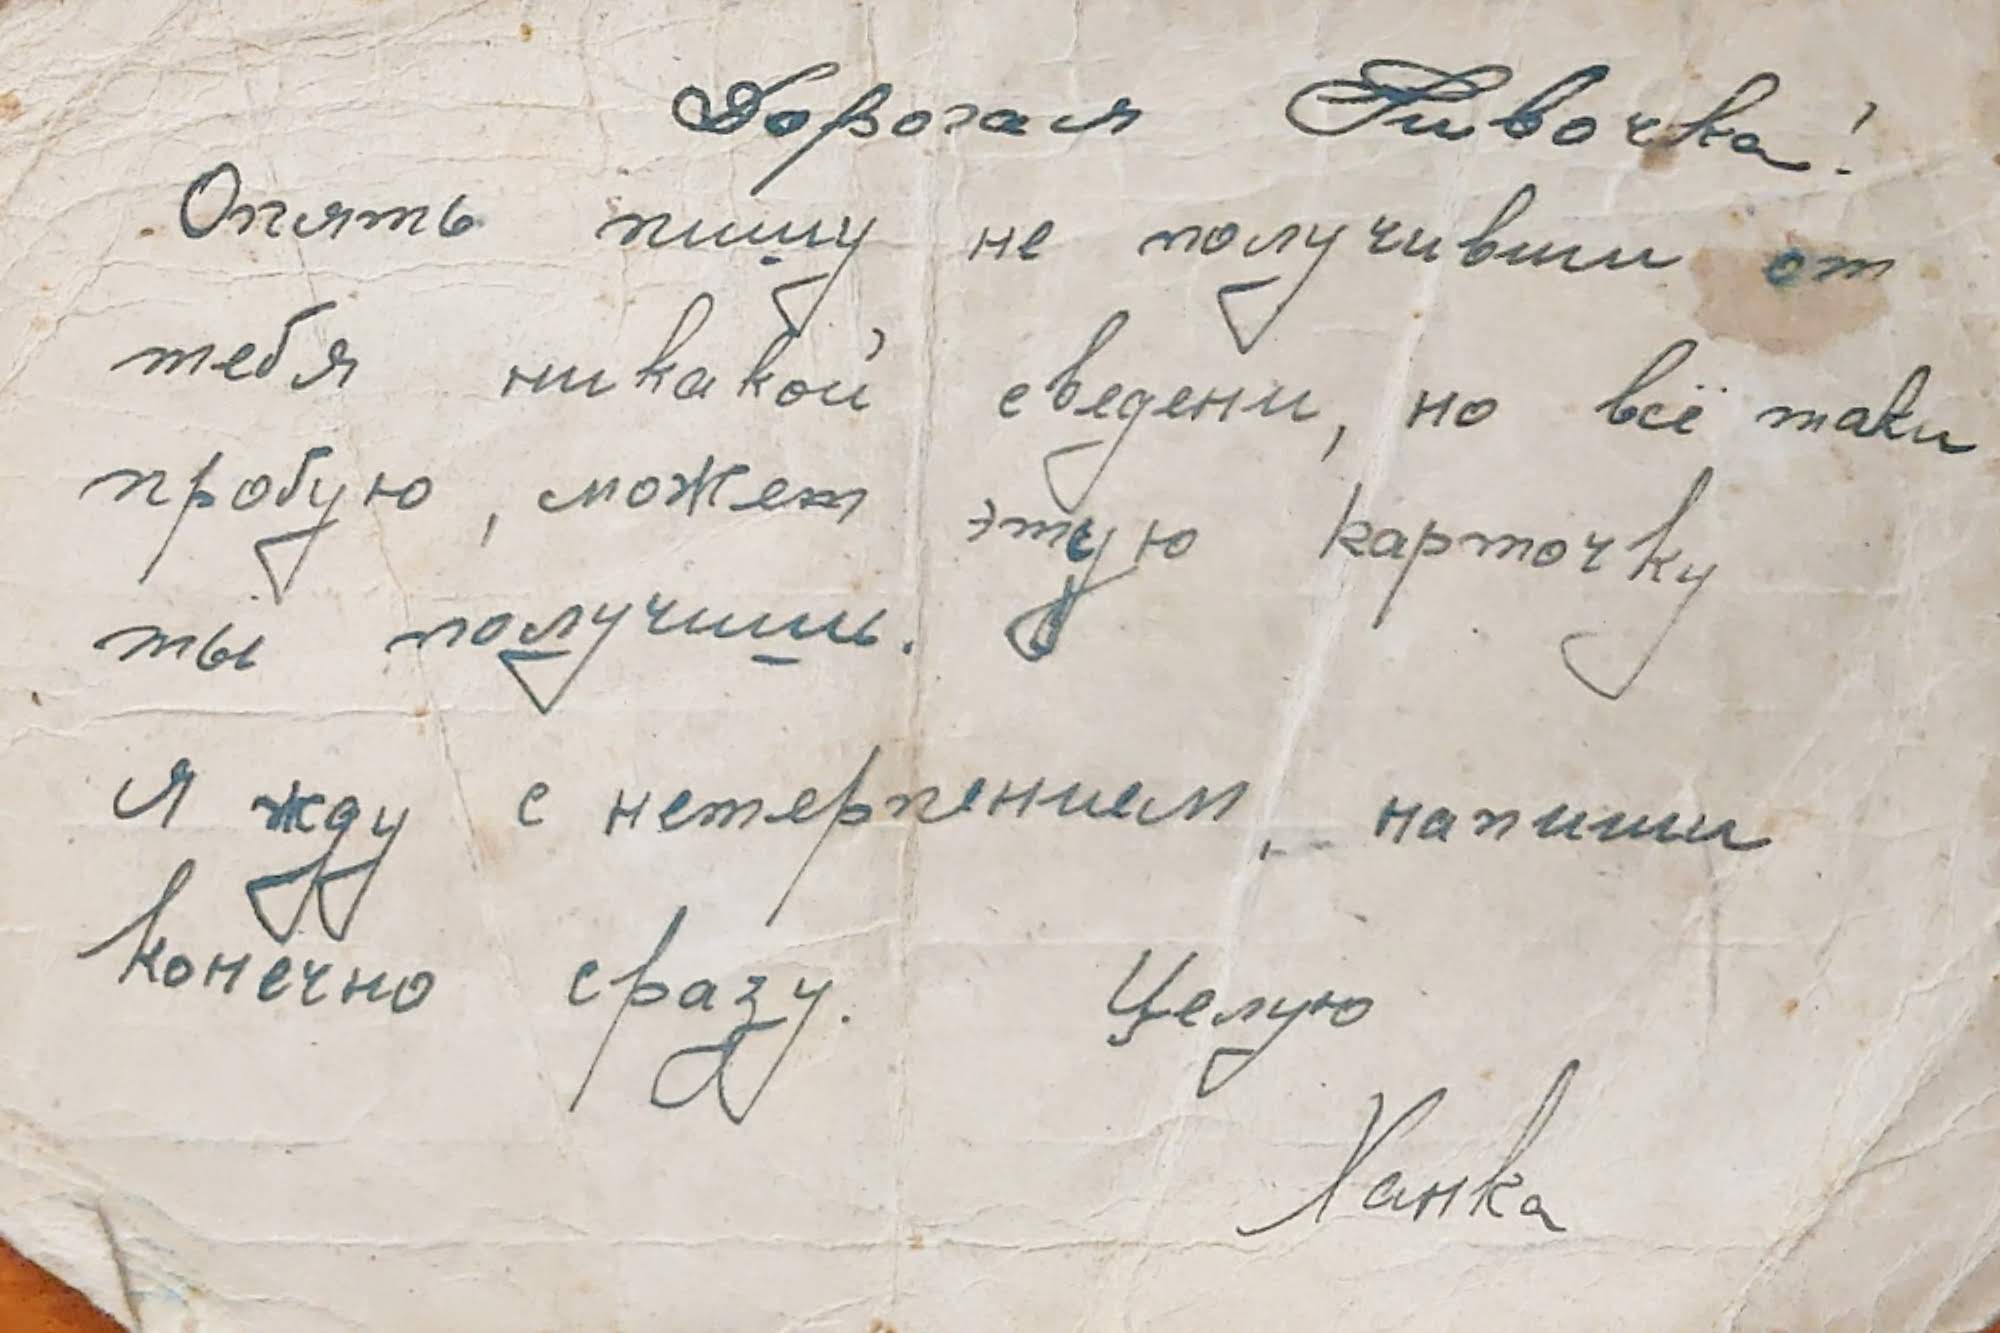 Дорогая Ривочка!
Опять пишу не получивши от
тебя никакой сведени, но всё таки
пробую, может этую карточку
ты получишь.
Я жду с нетерпением, напиши
конечно сразу. Целую
Ханка